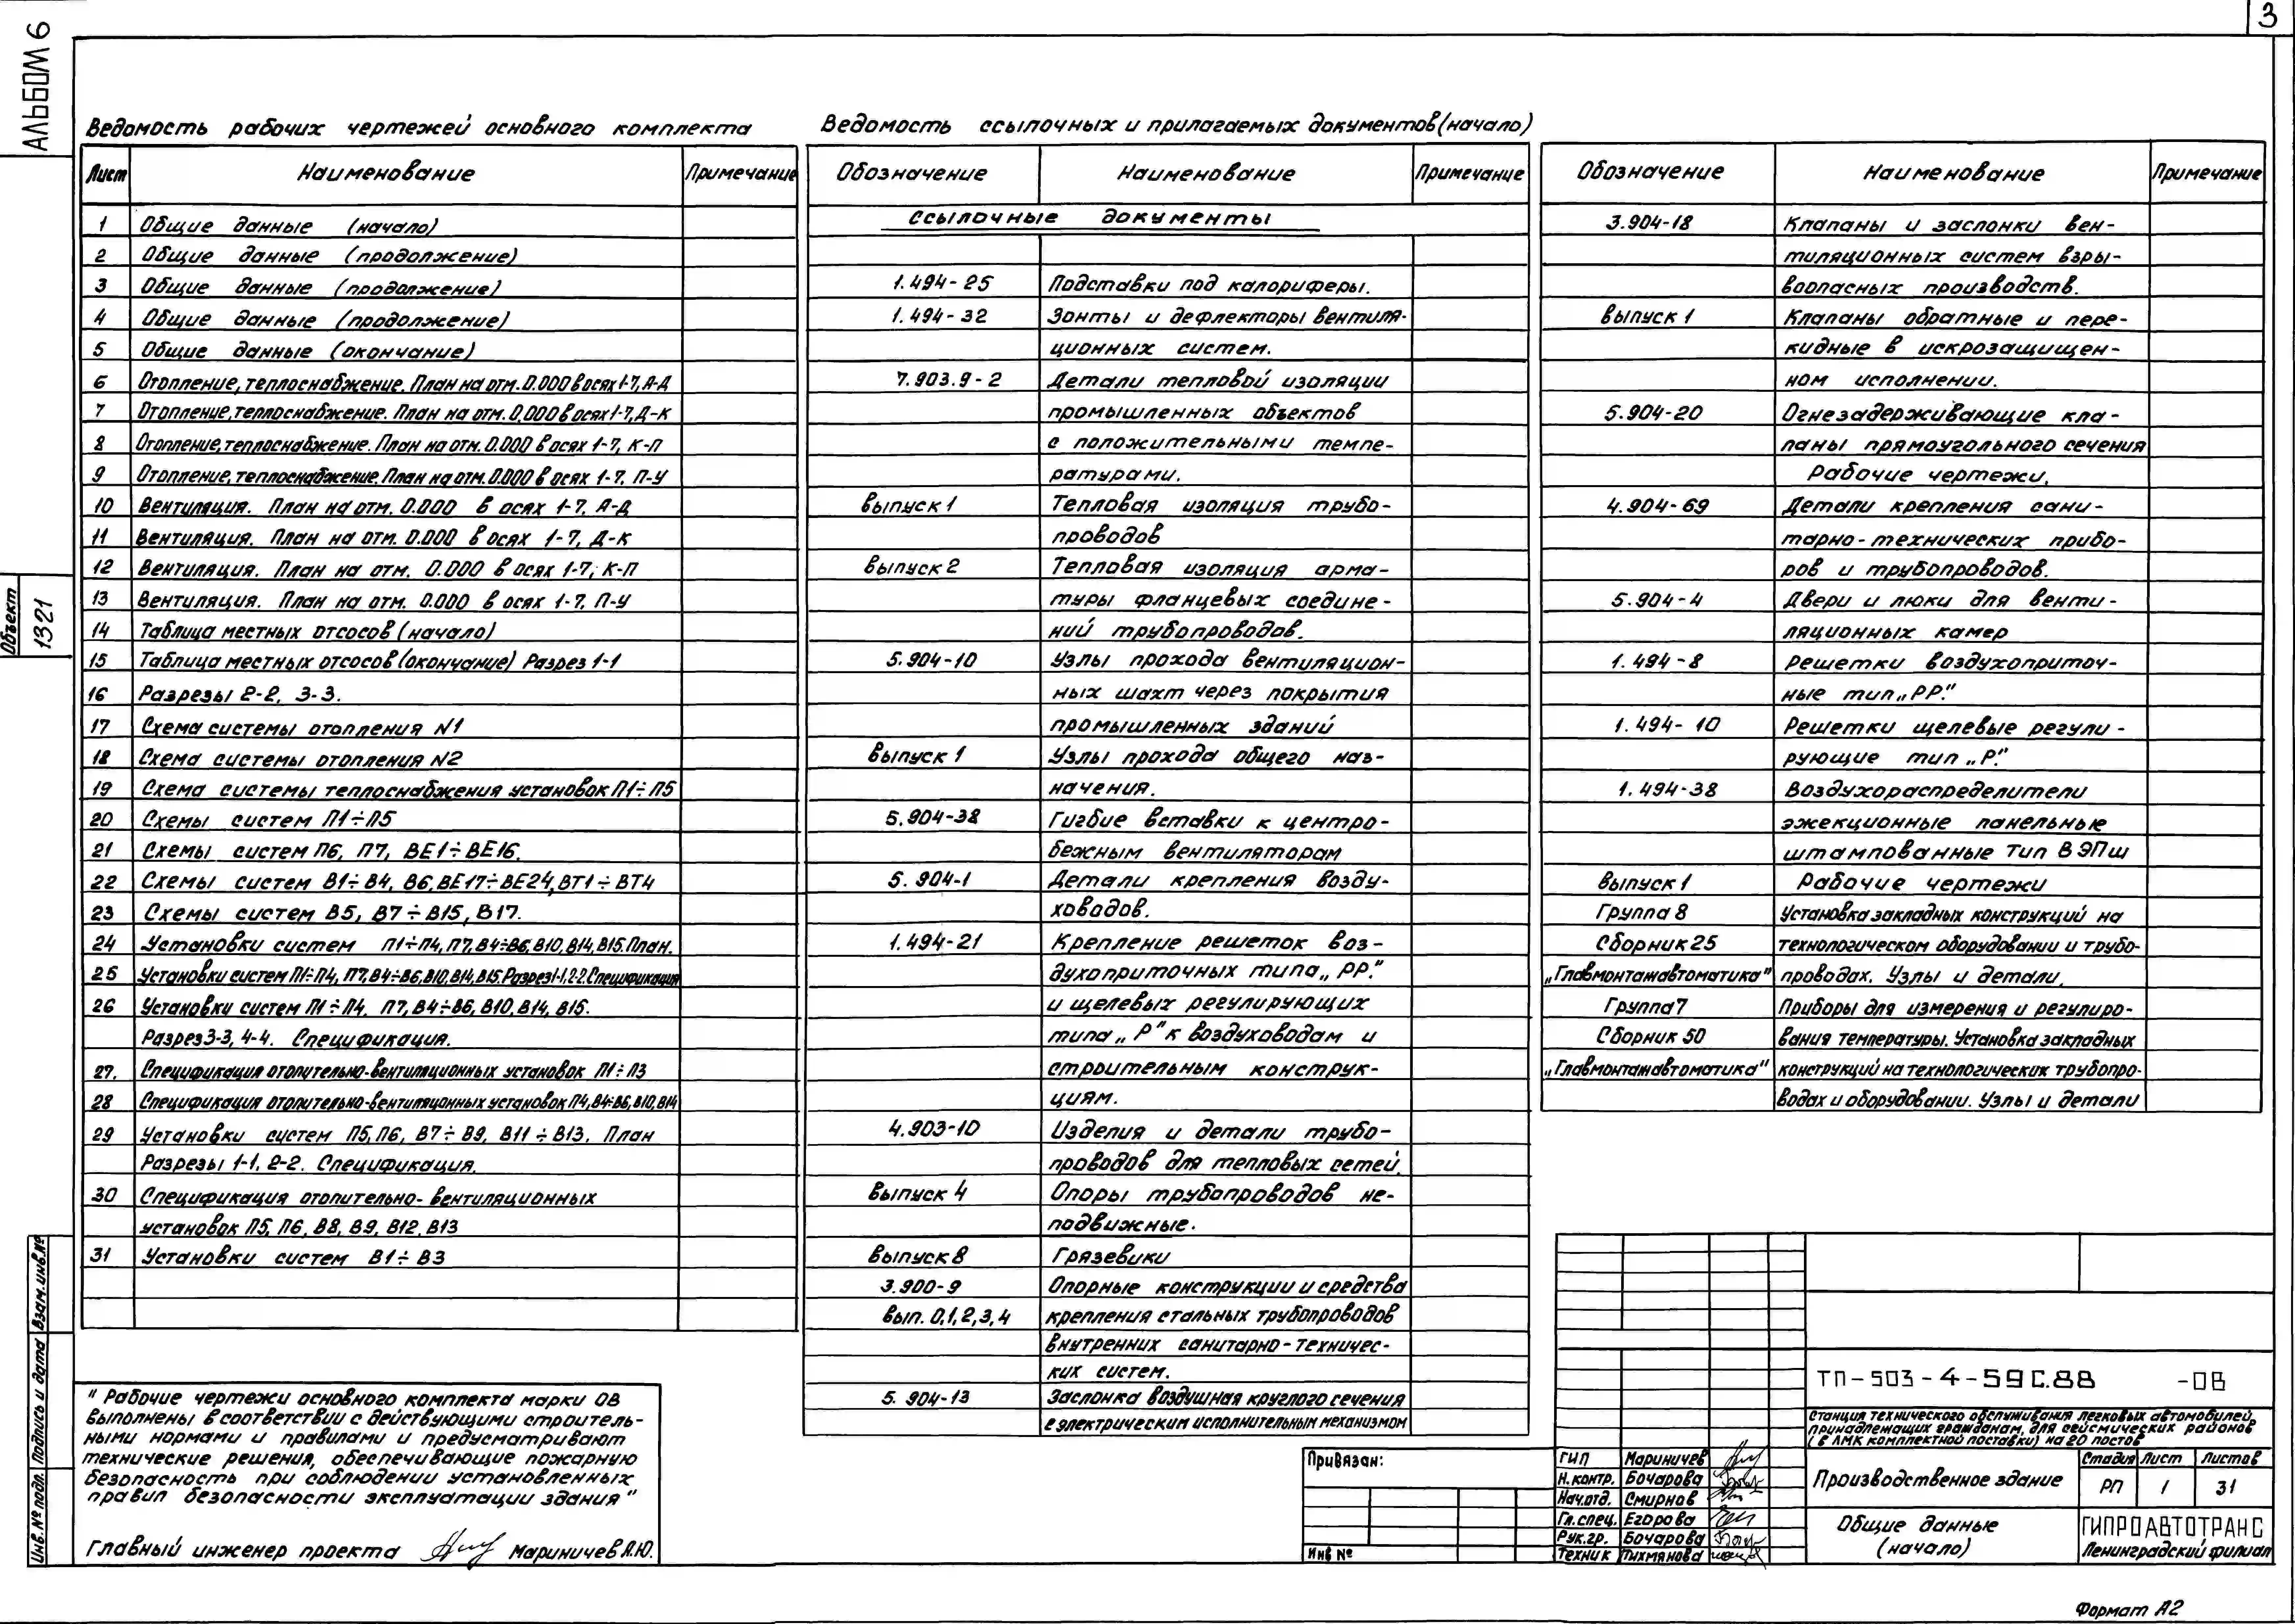 3
АЛЬБОМ 6
Ведомость рабочих чертежей основного комплекта
Лист Наименование Примечание
1 Общие данные (начало)
2 Общие данные (продолжение)
3 Общие данные (продолжение)
4 Общие данные (продолжение)
5 Общие данные (окончание)
6 Отопление, теплоснабжение. План на отм. 0.000 в осях 1-7, А-Д
7 Отопление, теплоснабжение. План на отм. 0.000 в осях 1-7, Д-К
8 Отопление, теплоснабжение. План на отм. 0.000 в осях 1-7, К-П
9 Отопление, теплоснабжение. План на отм. 0.000 в осях 1-7. П-У
10 Вентиляция. План на отм. 0.000 в осях 1-7. А-Д
11 Вентиляция. План на отм. 0.000 в осях 1-7, Д-К
12 Вентиляция. План на отм. 0.000 в осях 1-7, К-П
13 Вентиляция. План на отм. 0.000 в осях 1-7. П-У
14 Таблица местных отсосов (начало)
15 Таблица местных отсосов (окончание) Разрез 1-1
16 Разрезы 2-2, 3-3.
17 Схема системы отопления N1
18 Схема системы отопления N2
19 Схема системы теплоснабжения установок П1÷П5
20 Схемы систем П1÷П5
21 Схемы систем П6, П7, ВЕ1÷ВЕ16.
22 Схемы систем В1÷В4, В6, ВЕ17÷ВЕ24, ВТ1÷ВТ4
23 Схемы систем В5, В7÷В15, В17.
24 Установки систем П1÷П4, П7, В4÷В6, В10, В14, В15. План.
25 Установки систем П1÷П4, П7, В4÷В6, В10, В14, В15. Разрез 1-1, 2-2. Спецификация
26 Установки систем П1÷П4, П7, В4÷В6, В10, В14, В15.
Разрез 3-3, 4-4. Спецификация.
27. Спецификация отопительно-вентиляционных установок П1÷П3
28 Спецификация отопительно-вентиляционных установок П4, В4÷В6, В10, В14
29 Установки систем П5, П6, В7÷В9, В11÷В13. План
Разрезы 1-1, 2-2. Спецификация.
30 Спецификация отопительно-вентиляционных
установок П5, П6, В8, В9, В12, В13
31 Установки систем В1÷В3
Ведомость ссылочных и прилагаемых документов (начало)
Обозначение Наименование Примечание
Ссылочные документы
1.494-25 Подставки под калориферы.
1.494-32 Зонты и дефлекторы вентиля-
ционных систем.
7.903.9-2 Детали тепловой изоляции
промышленных объектов
с положительными темпе-
ратурами.
выпуск 1 Тепловая изоляция трубо-
проводов
выпуск 2 Тепловая изоляция арма-
туры фланцевых соедине-
ний трубопроводов.
5.904-10 Узлы прохода вентиляцион-
ных шахт через покрытия
промышленных зданий
выпуск 1 Узлы прохода общего наз-
начения.
5.904-38 Гигбие вставки к центро-
бежным вентиляторам
5.904-1 Детали крепления возду-
ховодов.
1.494-21 Крепление решеток воз-
духоприточных типа „РР."
и щелевых регулирующих
типа „Р" к воздуховодам и
строительным конструк-
циям.
4.903-10 Изделия и детали трубо-
проводов для тепловых сетей.
выпуск 4 Опоры трубопроводов не-
подвижные.
выпуск 8 Грязевики
3.900-9 Опорные конструкции и средства
вып. 0,1,2,3,4 крепления стальных трубопроводов
внутренних санитарно-техничес-
ких систем.
5.904-13 Заслонка воздушная круглого сечения
с электрическим исполнительным механизмом
Обозначение Наименование Примечание
3.904-18 Клапаны и заслонки вен-
тиляционных систем взры-
воопасных производств.
выпуск 1 Клапаны обратные и пере-
кидные в искрозащищен-
ном исполнении.
5.904-20 Огнезадерживающие кла-
паны прямоугольного сечения
Рабочие чертежи.
4.904-69 Детали крепления сани-
тарно-технических прибо-
ров и трубопроводов.
5.904-4 Двери и люки для венти-
ляционных камер
1.494-8 Решетки воздухоприточ-
ные тип „РР."
1.494-10 Решетки щелевые регули-
рующие тип „Р."
1.494-38 Воздухораспределители
эжекционные панельные
штампованные тип ВЭПш
выпуск 1 Рабочие чертежи
Группа 8 Установка закладных конструкций на
Сборник 25 технологическом оборудовании и трубо-
„Главмонтажавтоматика" проводах. Узлы и детали.
Группа 7 Приборы для измерения и регулиро-
Сборник 50 вания температуры. Установка закладных
„Главмонтажавтоматика" конструкций на технологических трубопро-
водах и оборудовании. Узлы и детали
Объект
1321
Инв. № подл. Подпись и дата Взам. инв. №
" Рабочие чертежи основного комплекта марки ОВ
выполнены в соответствии с действующими строитель-
ными нормами и правилами и предусматривают
технические решения, обеспечивающие пожарную
безопасность при соблюдении установленных
правил безопасности эксплуатации здания "
Главный инженер проекта Мариничев А.Ю.
Привязан:
Инв №
ТП-503-4-59С.88 -ОВ
Станция технического обслуживания легковых автомобилей,
принадлежащих гражданам, для сейсмических районов
(в ЛМК комплектной поставки) на 20 постов
ГИП Мариничев
Н.контр. Бочарова
Нач.отд. Смирнов
Гл.спец. Егорова
Рук.гр. Бочарова
Техник Пихмянова
Производственное здание
Стадия Лист Листов
РП 1 31
Общие данные
(начало)
ГИПРОАВТОТРАНС
Ленинградский филиал
Формат А2